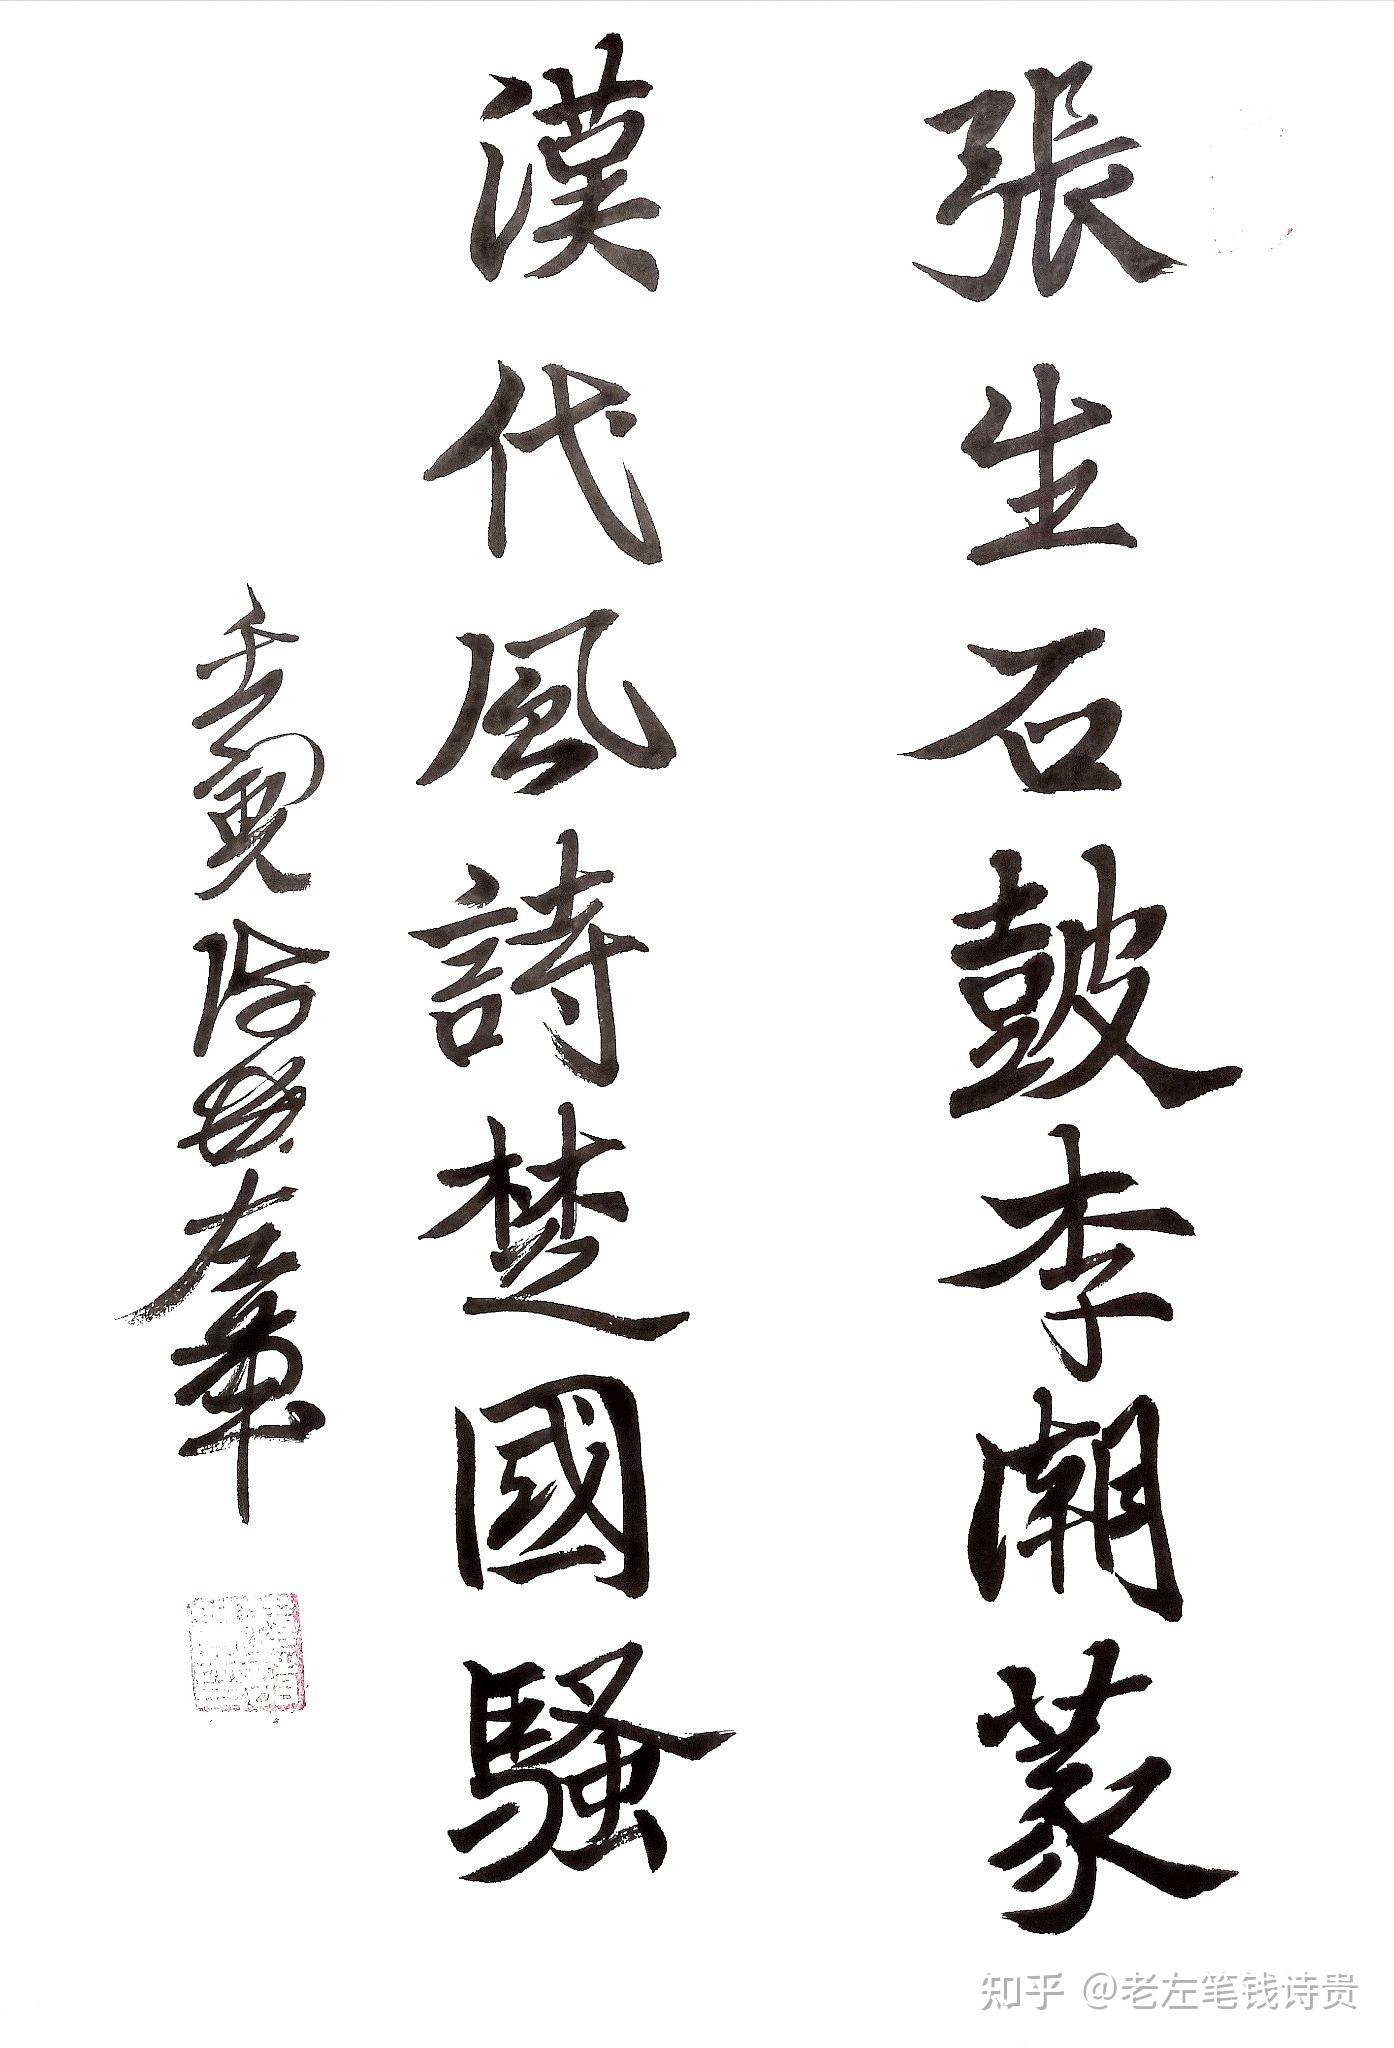 張生石皷李潮篆
漢代風詩楚國騷
壬寅 左
知乎 @老左笔钱诗贵